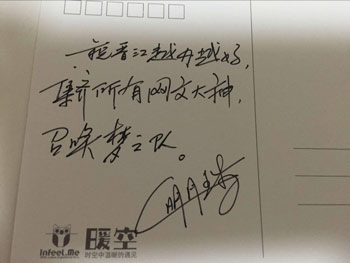 祝晋江越办越好,
集齐所有网文大神,
召唤梦之队。
明月珰
Infeel.Me
暖空
时空中温暖的遇见